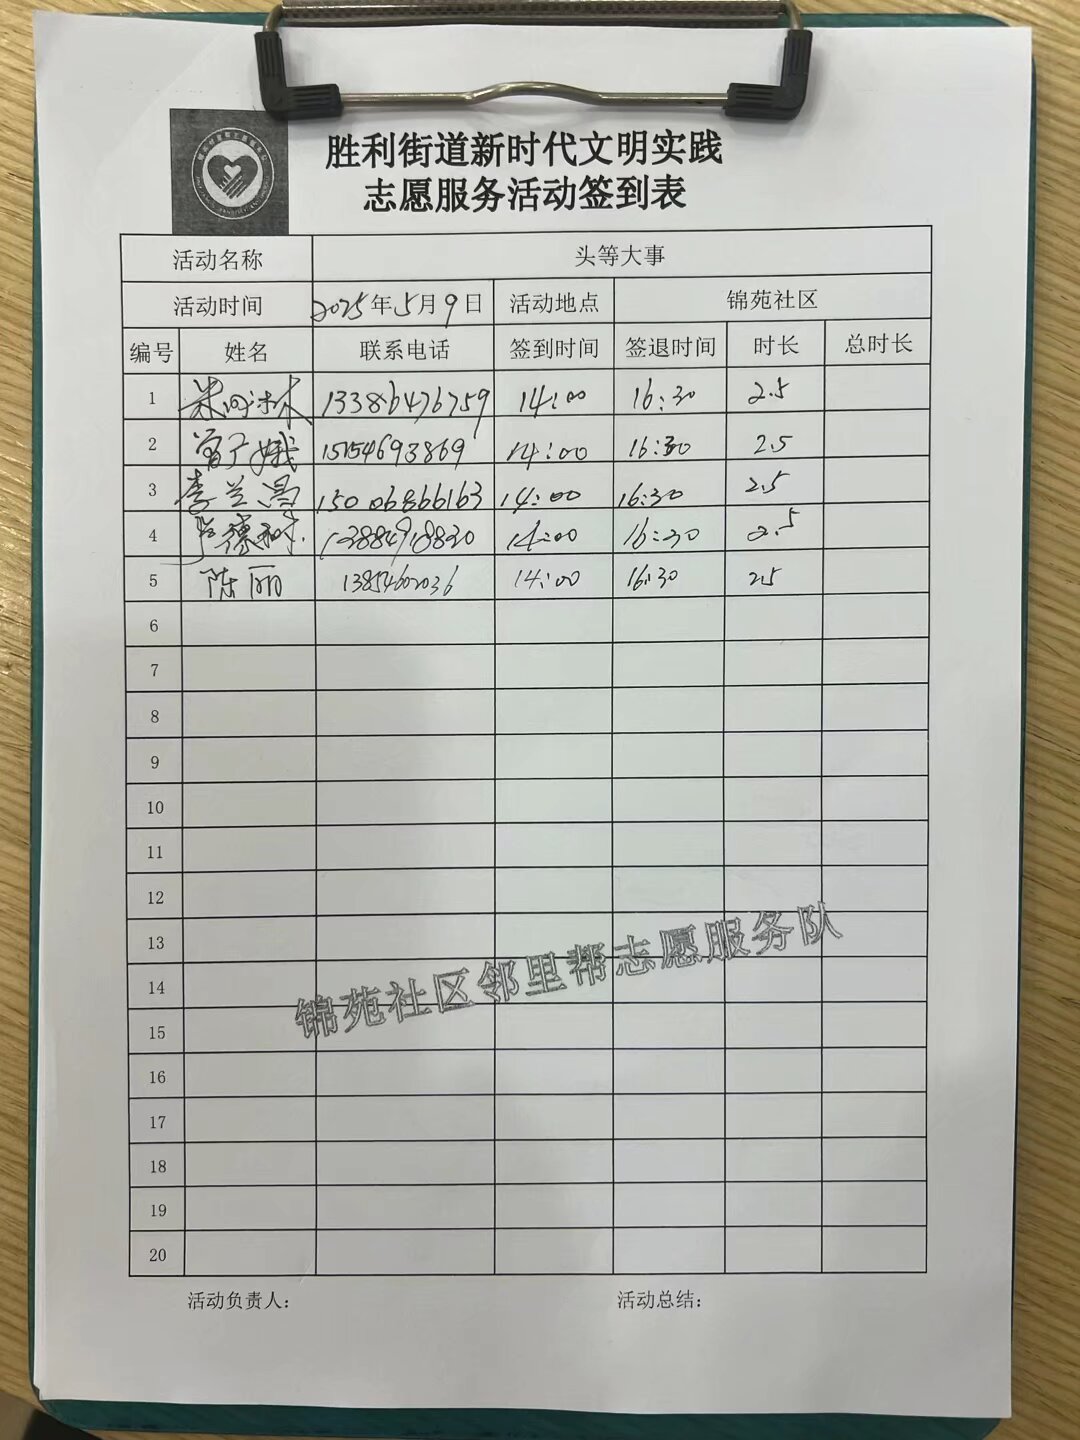 胜利街道新时代文明实践
志愿服务活动签到表
活动名称 头等大事
活动时间 2025年5月9日 活动地点 锦苑社区
编号 姓名 联系电话 签到时间 签退时间 时长 总时长
1 13386476759 14:00 16:30 2.5
2 曾广娥 15154693869 14:00 16:30 2.5
3 李兰昌 15006866163 14:00 16:30 2.5
4 13884918830 14:00 16:30 2.5
5 陈丽 13854602036 14:00 16:30 2.5
6
7
8
9
10
11
12
13
14
15
16
17
18
19
20
锦苑社区邻里帮志愿服务队
活动负责人: 活动总结: